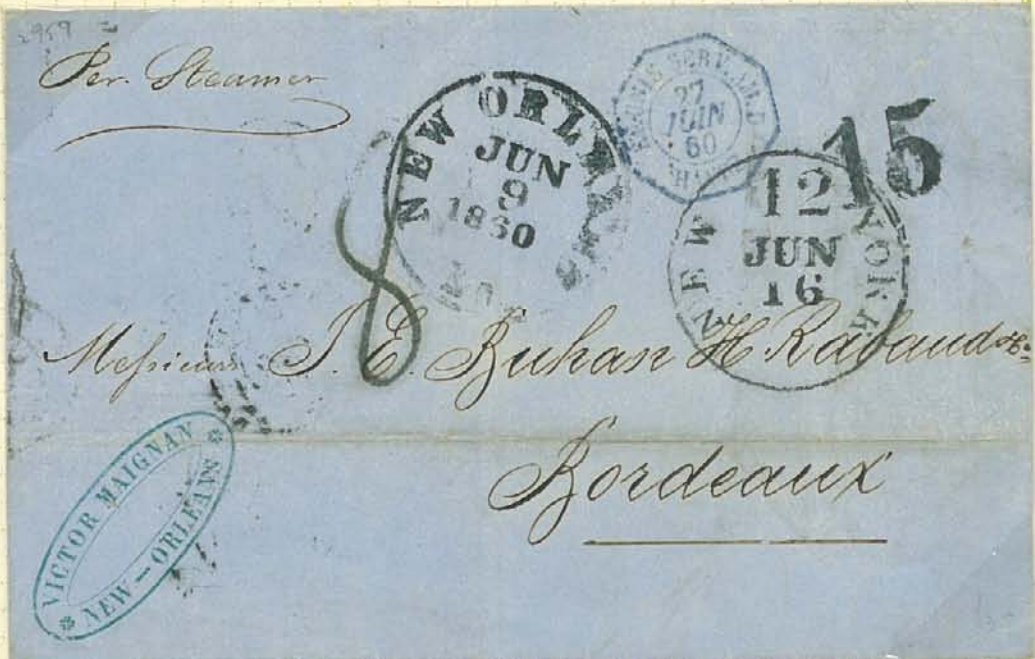 2959
Per. Steamer
NEW ORLEANS
JUN
9
1860
27
JUIN
60
15
NEW YORK
12
JUN
16
8
Messieurs J. E. Buhan H. Rabaud & Co
Bordeaux
VICTOR MAIGNAN
NEW-ORLEANS